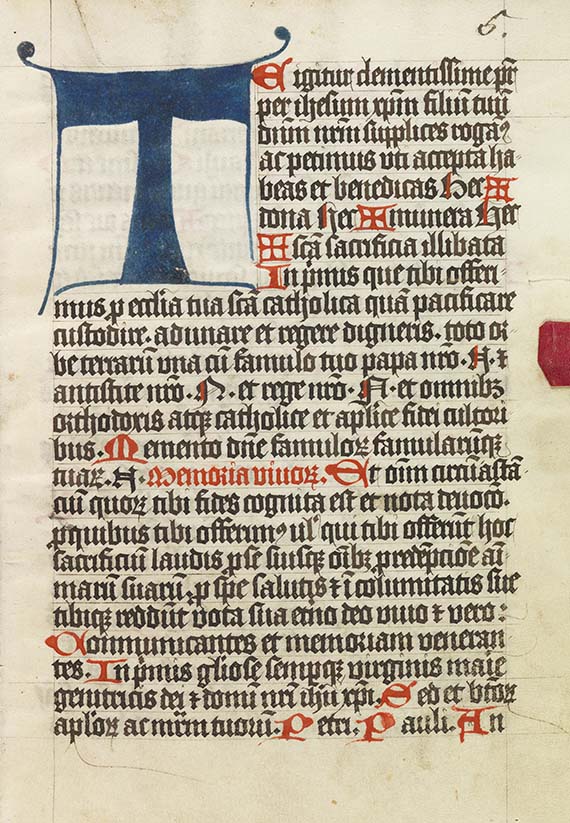 6.
TE igitur clementissime pr̄
per ihesum xp̄m filiū tuū
dn̄m nr̄m supplices roga⁹
ac petimus vti accepta ha
beas et benedicas Hec ✠
dona hec ✠ munera hec
✠ scā sacrificia illibata
In pͥmis que tibi offeri-
mus ꝓ ecclīa tua scā catholica quā pacificare
custodire. adunare et regere digneris. toto or
be terrarū vna cū famulo tuo papa nr̄o .N. ⁊
antistite nr̄o. N. et rege nr̄o. N. et omnibꝫ
orthodoxis atqꝫ catholice et apl̄ice fidei cultori
bus. Memento dn̄e famuloꝝ famularūqꝫ
tuaꝝ. N. Memoria viuoꝝ. Et om̄i circūastā
ciū quoꝝ tibi fides cognita est et nota deuoc̄o.
ꝓ quibus tibi offerim⁹ ul̓ qui tibi offerūt hoc
sacrificiū laudis ꝓ se suisqꝫ oībꝫ ꝓ redēpcione aī-
marū suarū, ꝓ spe salutis ⁊ īcolumitatis sue
tibiqꝫ reddūt vota sua et̄no deo viuo ⁊ vero:
Communicantes et memoriam veneran
tes. In pͥmis gl̄iose sempqꝫ virginis marie
genitricis dei ⁊ domī nr̄i ihū xp̄i. Sed et btōꝝ
apl̄oꝝ ac mr̄m tuorū. Petri. Pauli. An